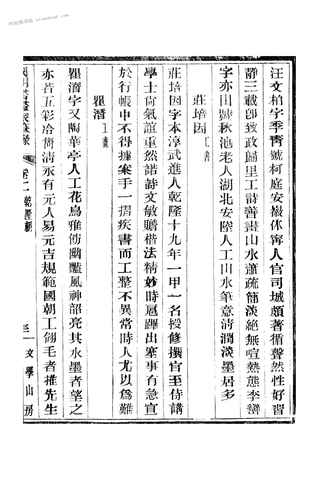 汪文柏字季青號柯庭安徽休寧人官司城頗著循聲然性好習
靜三載卽致政歸里工詩善畫山水蕭疏簡淡絕無喧熱態李
字亦山號秋池老人湖北安陸人工山水筆意清潤淡墨居多
莊培因 工書
莊培因字本淳武進人乾隆十九年一甲一名授修撰官至侍講
學士尙氣誼重然諾詩文敏贍楷法精妙時扈蹕出塞事有急宣
於行帳中不得據案手一摺疾書而工整不異常時人尤以爲難
瞿潛 工畫
瞿潛字又陶華亭人工花鳥雅俏幽豔風神韶亮其水墨者望之
亦若五彩洽 清 永有元人易元吉規範國朝工翎毛者推先生
卷二
文學山房